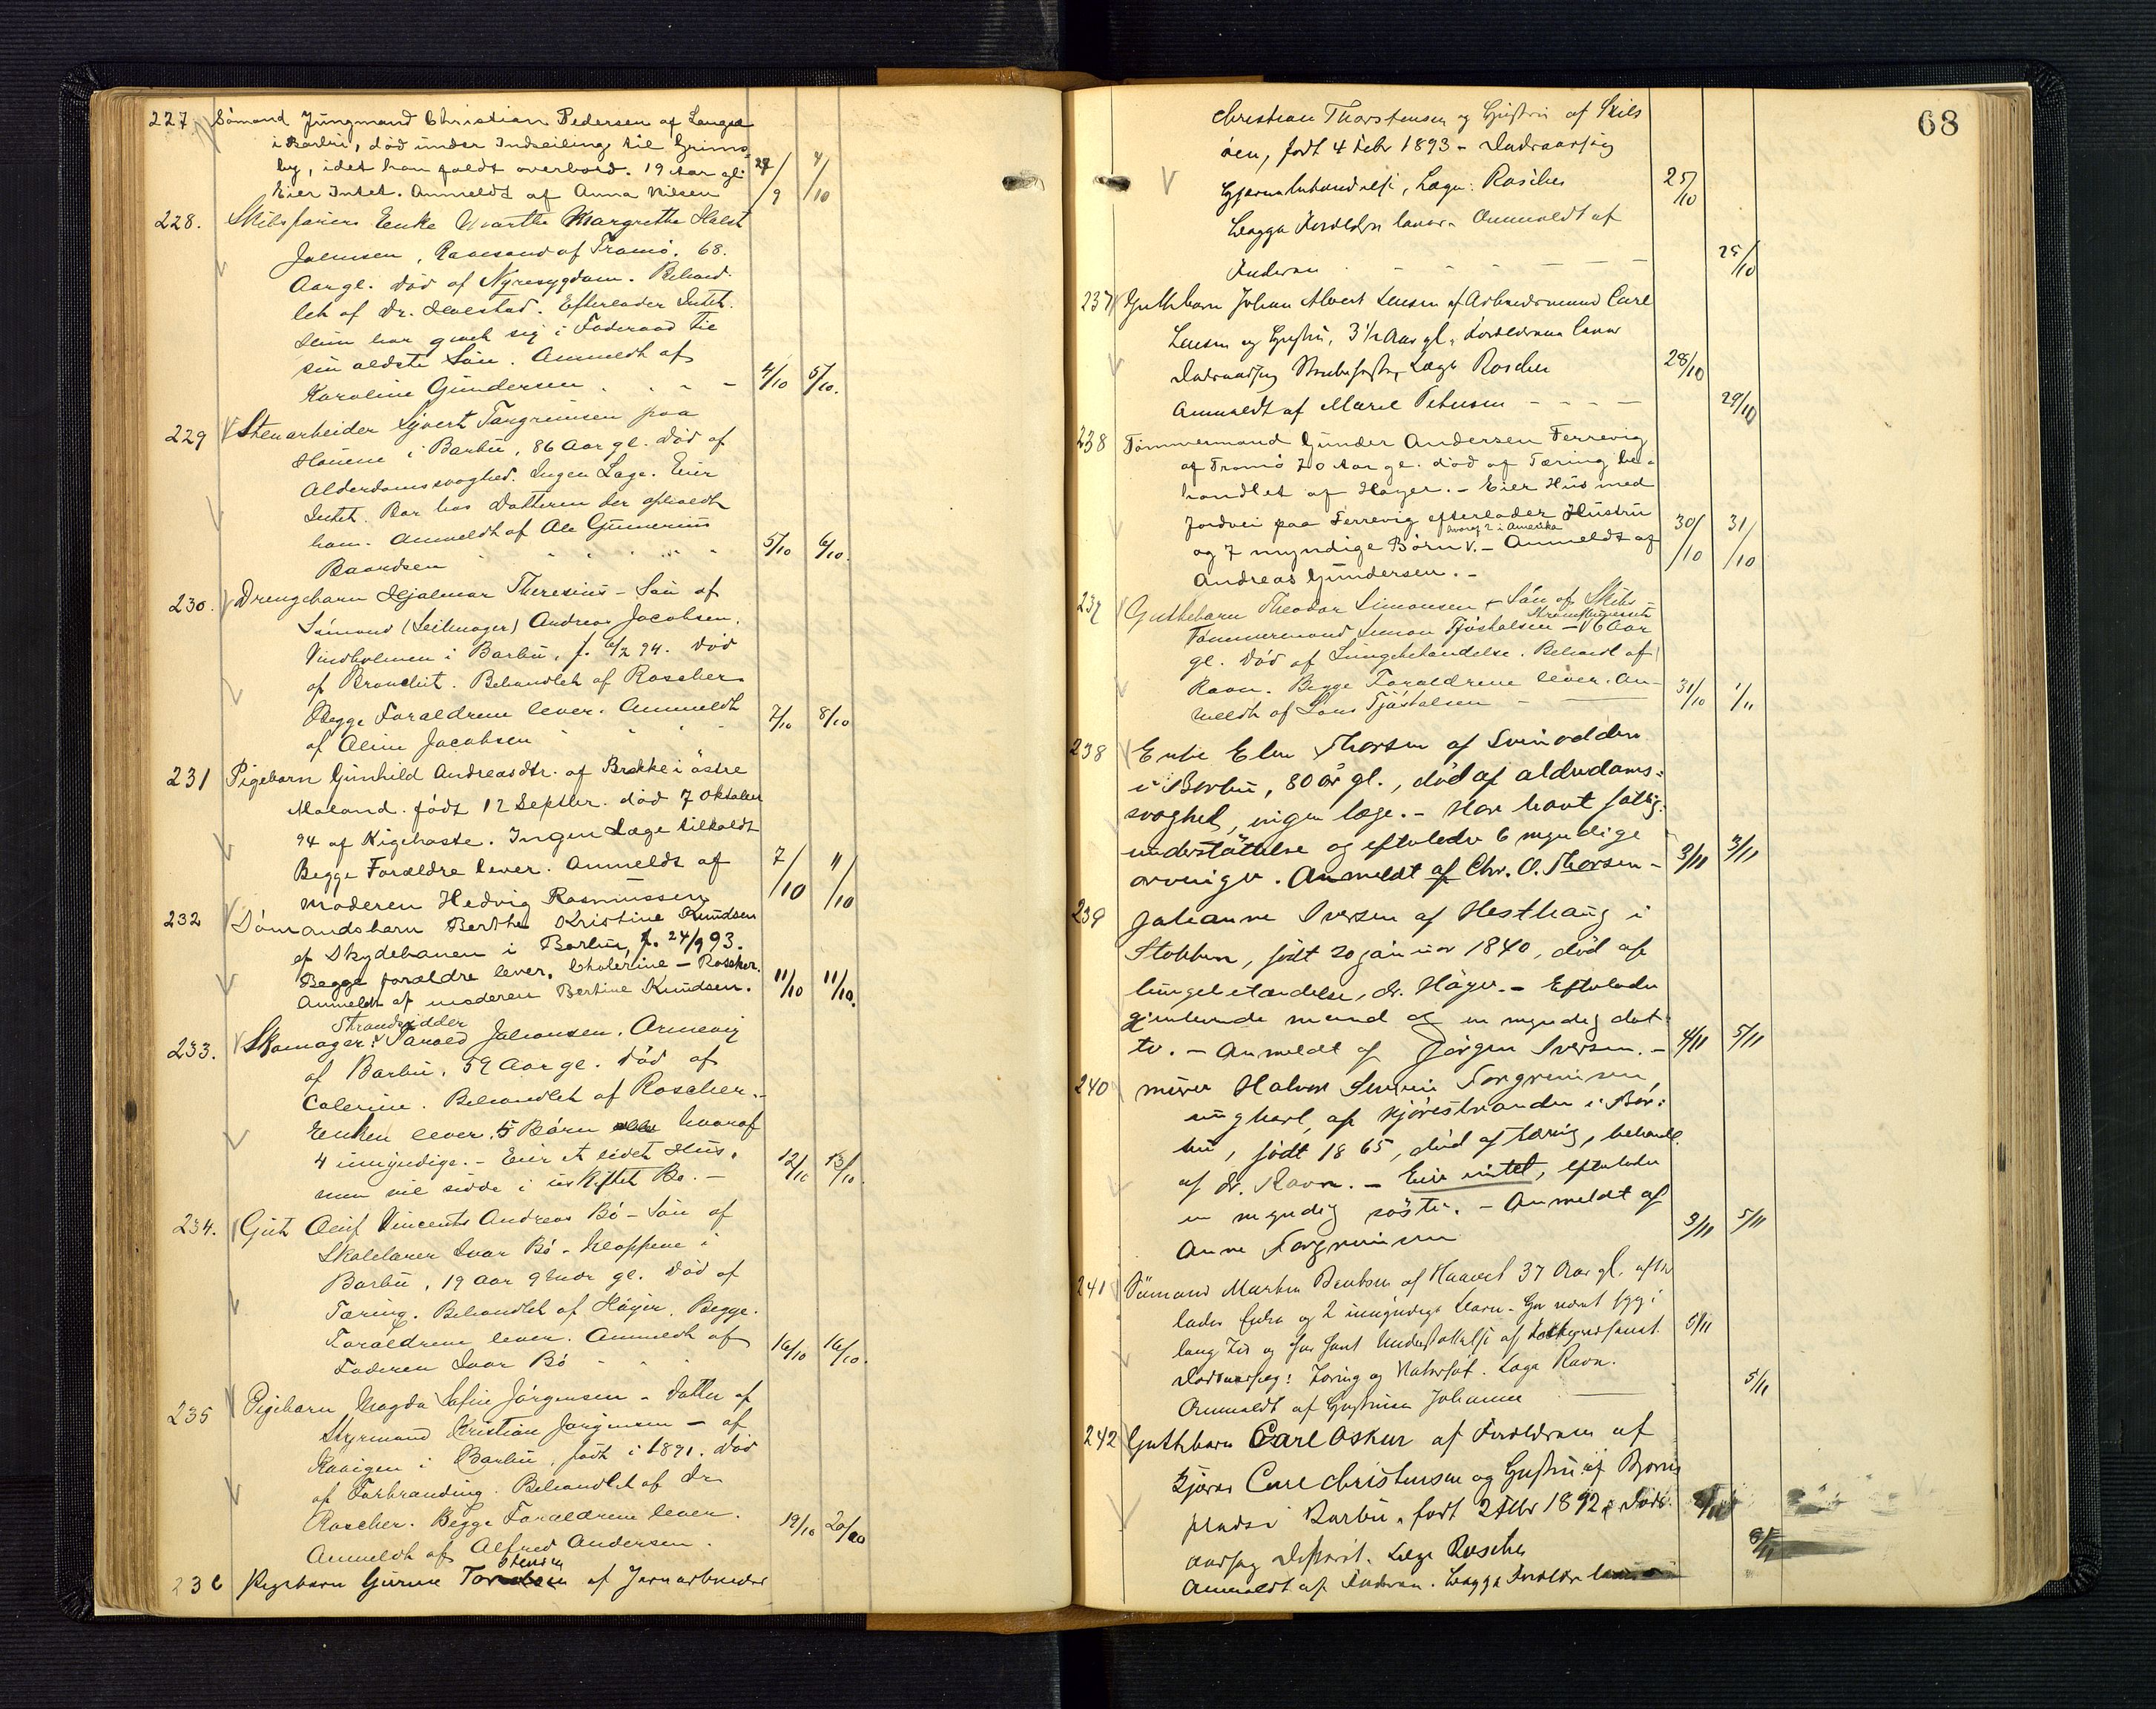 227 Sömand Jüngmand Christian Pedersen af Langsæ
i Barbü, död ünder Indseiling til Grims-
by, idet han faldt overbord. 19 Aar gl. 27/9 4/10
Eier Intet. Anmeldt af Anna Nilsen
228. Skibsförers Enke Marthe Margrethe Holst
Jaennsen, Ravesand af Tromö. 68.
Aar gl. Död af Nyresygdom. Behand-
let af Dr. Hvestad. Efterlader Intet.
Hün har givet sig i Foderaad til
sin ældste Sön. Anmeldt af
Karoline Gündersen 4/10 5/10.
229 Stenarbeider Syvert Targrimsen paa
Hauene i Barbü, 86 Aar gl. Död af
Alderdomssvaghed. Ingen Læge. Eier
Intet. Bor hos Datteren der opholdt
ham. Anmeldt af Ale Günnerius
Baardsen 5/10 6/10.
230. Drengebarn Hjalmar Theresius - Sön af
Sömand (Seilmager) Andreas Jacobsen.
Vindholmen i Barbü, f. 6/2 94. Död
af Bronchit. Behandlet af Roscher
Begge Forældrene lever. Anmeldt
af Aline Jacobsen 7/10 8/10
231 Pigebarn Günhild Andreasdtr. af Brekke i östre
Moland. födt 12 Septbr. död 7 Oktober
94 af Kigehoste. Ingen Læge tilkaldt
Begge Forældre lever. Anmeldt af 7/10 11/10
moderen Hedvig Rasmüssen
232 Sömandsbarn Berthe Kristine Knüdsen
af Skydebanen i Barbü, f. 24/9 93.
Begge forældre lever. Cholerine - Roscher.
Anmeldt af moderen Bertine Knüdsen. 11/10 11/10.
Strandsidder
233. Skomager: Tarald Johansen. Arnevig
af Barbü. 59 Aar gl. Död af
Colerine. Behandlet af Roscher.-
Enken lever. 5 Börn hvoraf
4 ümyndige. - Eier et lidet Hüs,
men vil sidde i üskiftet Bo. - 12/10 13/10.
234. Güt Oluf Vincents Andreas Bö - Sön af
Skolelærer Ivar Bö - Kloppene i
Barbü, 19 Aar 9 Mdr gl. Död af
Tæring. Behandlet af Höyer. Begge
Forældrene lever. Anmeldt af
Faderen Ivar Bö 16/10 16/10.
235 Pigebarn Magda Sofie Jörgensen - Datter af
Styrmand Kristian Jörgensen - af
Kavigen i Barbü, födt i 1891. Död
af Forbrænding. Behandlet af Dr.
Roscher. Begge Forældrene lever.
Anmeldt af Alfred Andersen. 19/10 20/10
236 Pigebarn Gürine Torstensen af Jernarbeider
68
Christian Thorstensen og Hüstrü af Skils
öen, født 4 Febr 1893 - Dødsaarsag
Hjernebetændelse, Læge: Roscher 25/10
Begge Forældre lever. Anmeldt af
Faderen - - - - 25/10
237 Guttebarn Johan Albert Larsen af Arbeidsmand Carl
Larsen og Hüstrü, 3 1/2 Aar gl, Forældrene lever
Dødsaarsag Strübehoste, Læge Roscher 28/10
Anmeldt af Marie Petersen - - - 29/10
238 Tömmermand Günder Andersen Færrevig
af Tromö 70 Aar gl. död af Tæring be-
handlet af Høyer. - Eier Hüs med
Jordvei paa Færrevig efterlader Hüstrü
hvoraf 2 i Amerika
og 7 myndige Börn V. - Anmeldt af 30/10 31/10
Andreas Gündersen. -
237 Guttebarn Theodor Simonsen - Sön af Skibs-
Tömmermand Simon Tjöstolsen - V 6 Aar
gl. Död af Lüngebetændelse. Behandl. af
Ravn. Begge Forældrene lever. An-
meldt af Lars Tjöstolsen 31/10 1/11
238 Enke Elen Thorsen af Svinodden
i Barbü, 80 år gl., död af alderdoms-
svaghet, ingen læge. - Har havt fattig-
understöttelse og efterlader 6 myndige
arvinger. Anmeldt af Chr. O. Thorsen - 3/11 3/11
239 Johanne Iversen af Hesthaug i
Stokken, födt 20 januar 1840, död af
lungebetændelse, dr. Höyer. - Efterlader
gjenlevende mand og en myndig dat-
ter. - Anmeldt af Jörgen Iversen. - 4/11 5/11
240 mürer Halvor Severin Torgrimsen,
ungkarl, af Kjörestranden i Bar-
bu, födt 1865, död af tæring, behandl.
af dr. Ravn. - Eier intet, efterlader
en myndig söster. - Anmeldt af
Anne Torgrimsen 3/11 5/11
241 Sömand Morten Bentsen af Haavet 37 Aar gl. efter
lader Enke og 2 ümyndige Børn - Har været syg i
lang Tid og har havt Understøttelse af 5/11
Dødsaarsag: Tæring og Vatersot. Læge Ravn.
Anmeldt af Hüstrüen Johanne 5/11
242 Guttebarn Carl Oskar af Forældrene af
Kjører Carl Christensen og Hüstrü af Bjönnes
pladsi Barbü, født 2 Febr 1892, Døds-
aarsag Difterit. Læge Roscher
Anmeldt af Faderen. Begge Forældre lever